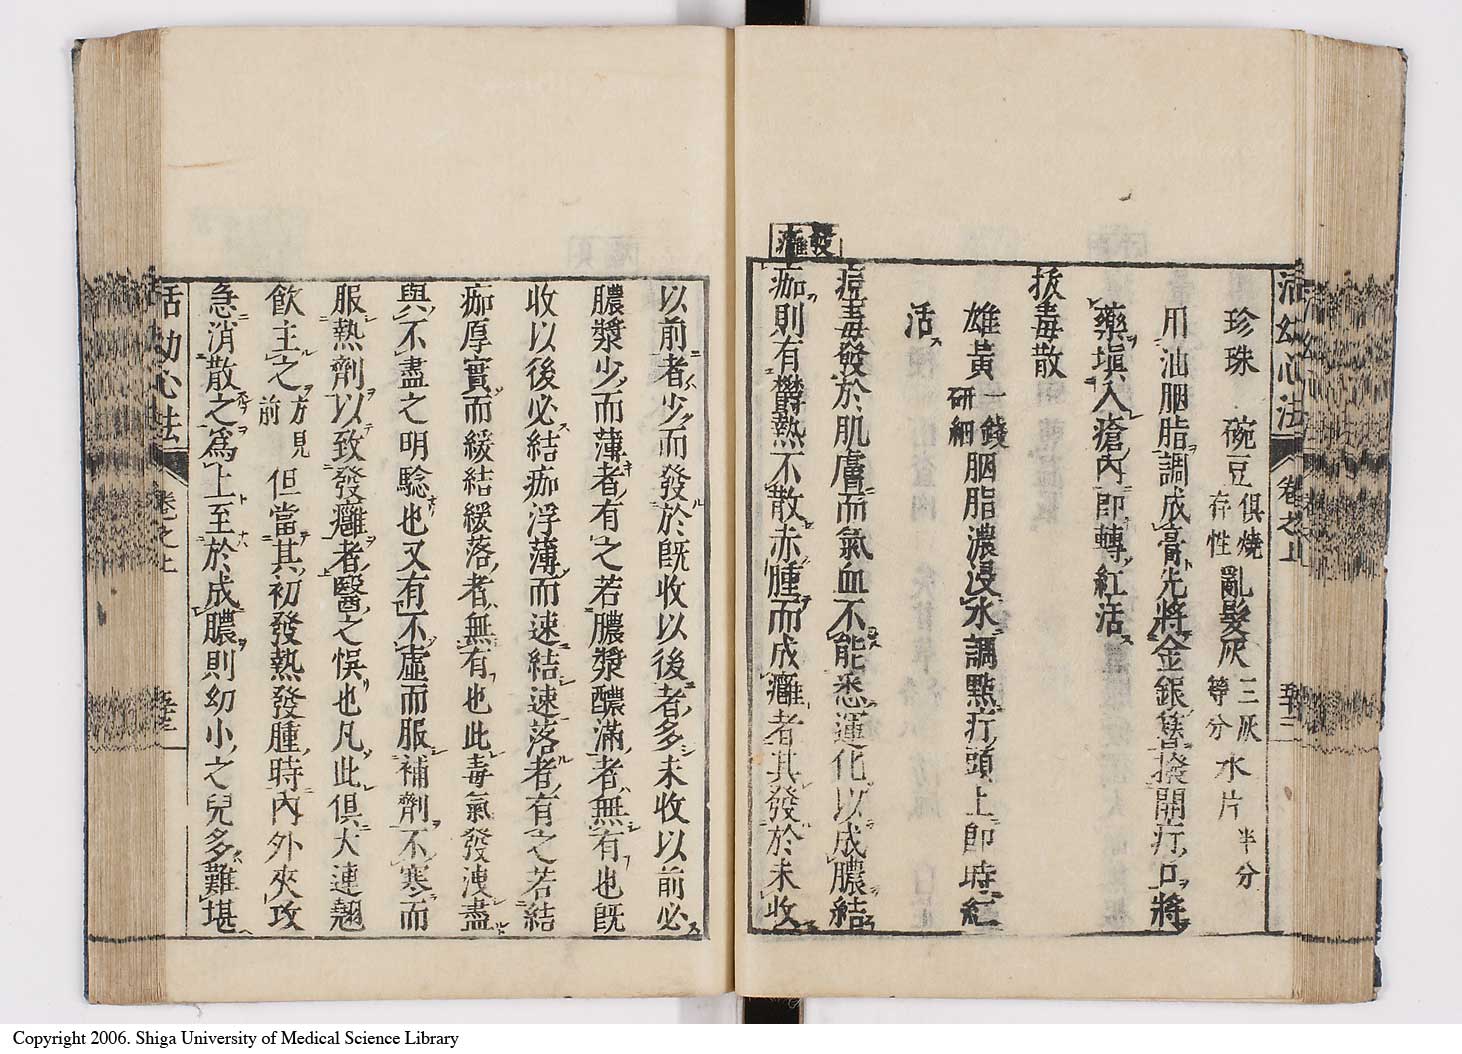 活幼心法 卷之上 至三
珍珠 碗豆 俱燒存性 亂髮灰 三灰等分 水片 半分
用油胭脂調成膏先將金銀簪撥開疔口將
藥塡入瘡內卽轉紅活
拔毒散
雄黃 一錢研細 胭脂濃浸水調點疔頭上卽時紅
活
發癰
痘毒發於肌膚而氣血不能悉運化以成膿結
痂則有欝熱不散赤腫而成癰者其發於未收
以前者少而發於既收以後者多未收以前必
膿漿少而薄者有之若膿漿醲滿者無有也旣
收以後必結痂浮薄而速結速落者有之若結
痂厚實而緩結緩落者無有也此毒氣發洩盡
與不盡之明騐也又有不虛而服補劑不寒而
服熱劑以致發癰者醫之悞也凡此俱大連翹
飲主之 方見前 但當其初發熱發腫時內外夾攻
急消散之爲上至於成膿則幼小之兒多難堪
活幼心法 卷之上
Copyright 2006. Shiga University of Medical Science Library